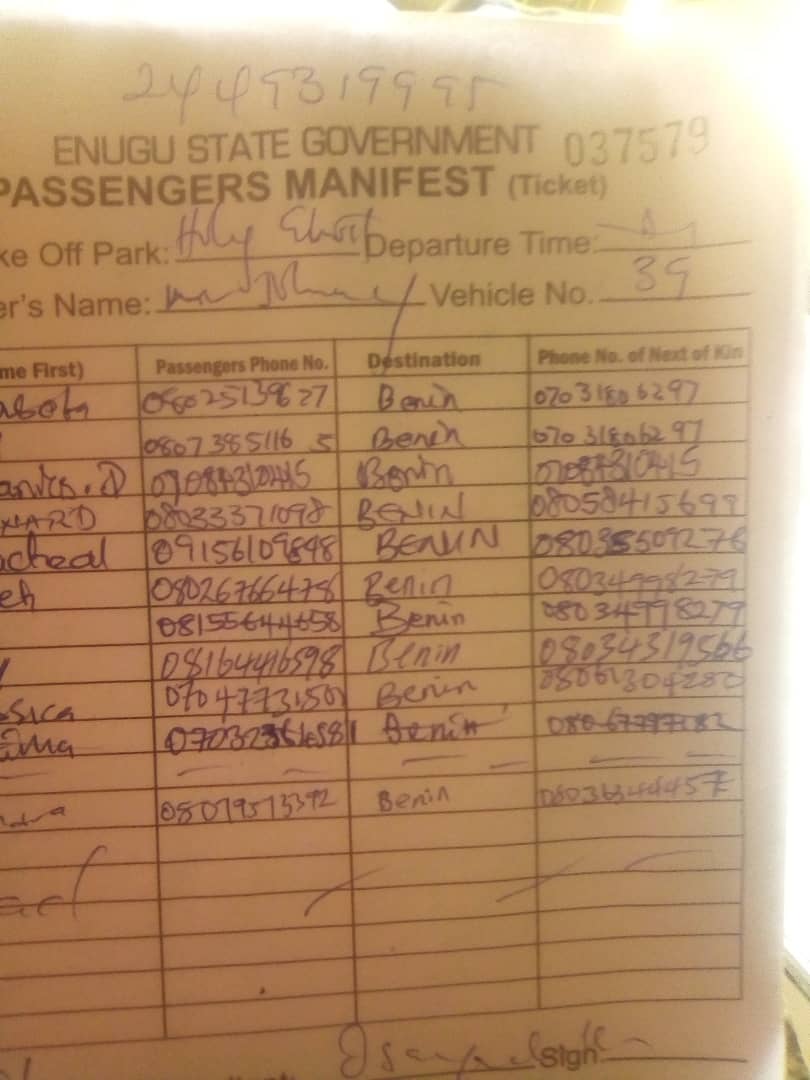 2449319995
ENUGU STATE GOVERNMENT 037579
PASSENGERS MANIFEST (Ticket)
ke Off Park: Holy Ghost Departure Time:
er's Name: Vehicle No. 39
me First) Passengers Phone No. Destination Phone No. of Next of Kin
08025139627 Benin 07031806297
08073851165 Benin 07031806297
Benin
08033371098 BENIN 08058415699
acheal 09156109848 BENIN
eh 08026766478 Benin 08034998279
08155644658 Benin 08034998279
08164416598 Benin 08034319566
ssica Benin 08061304280
Benin
Benin 08036344457
Sign: